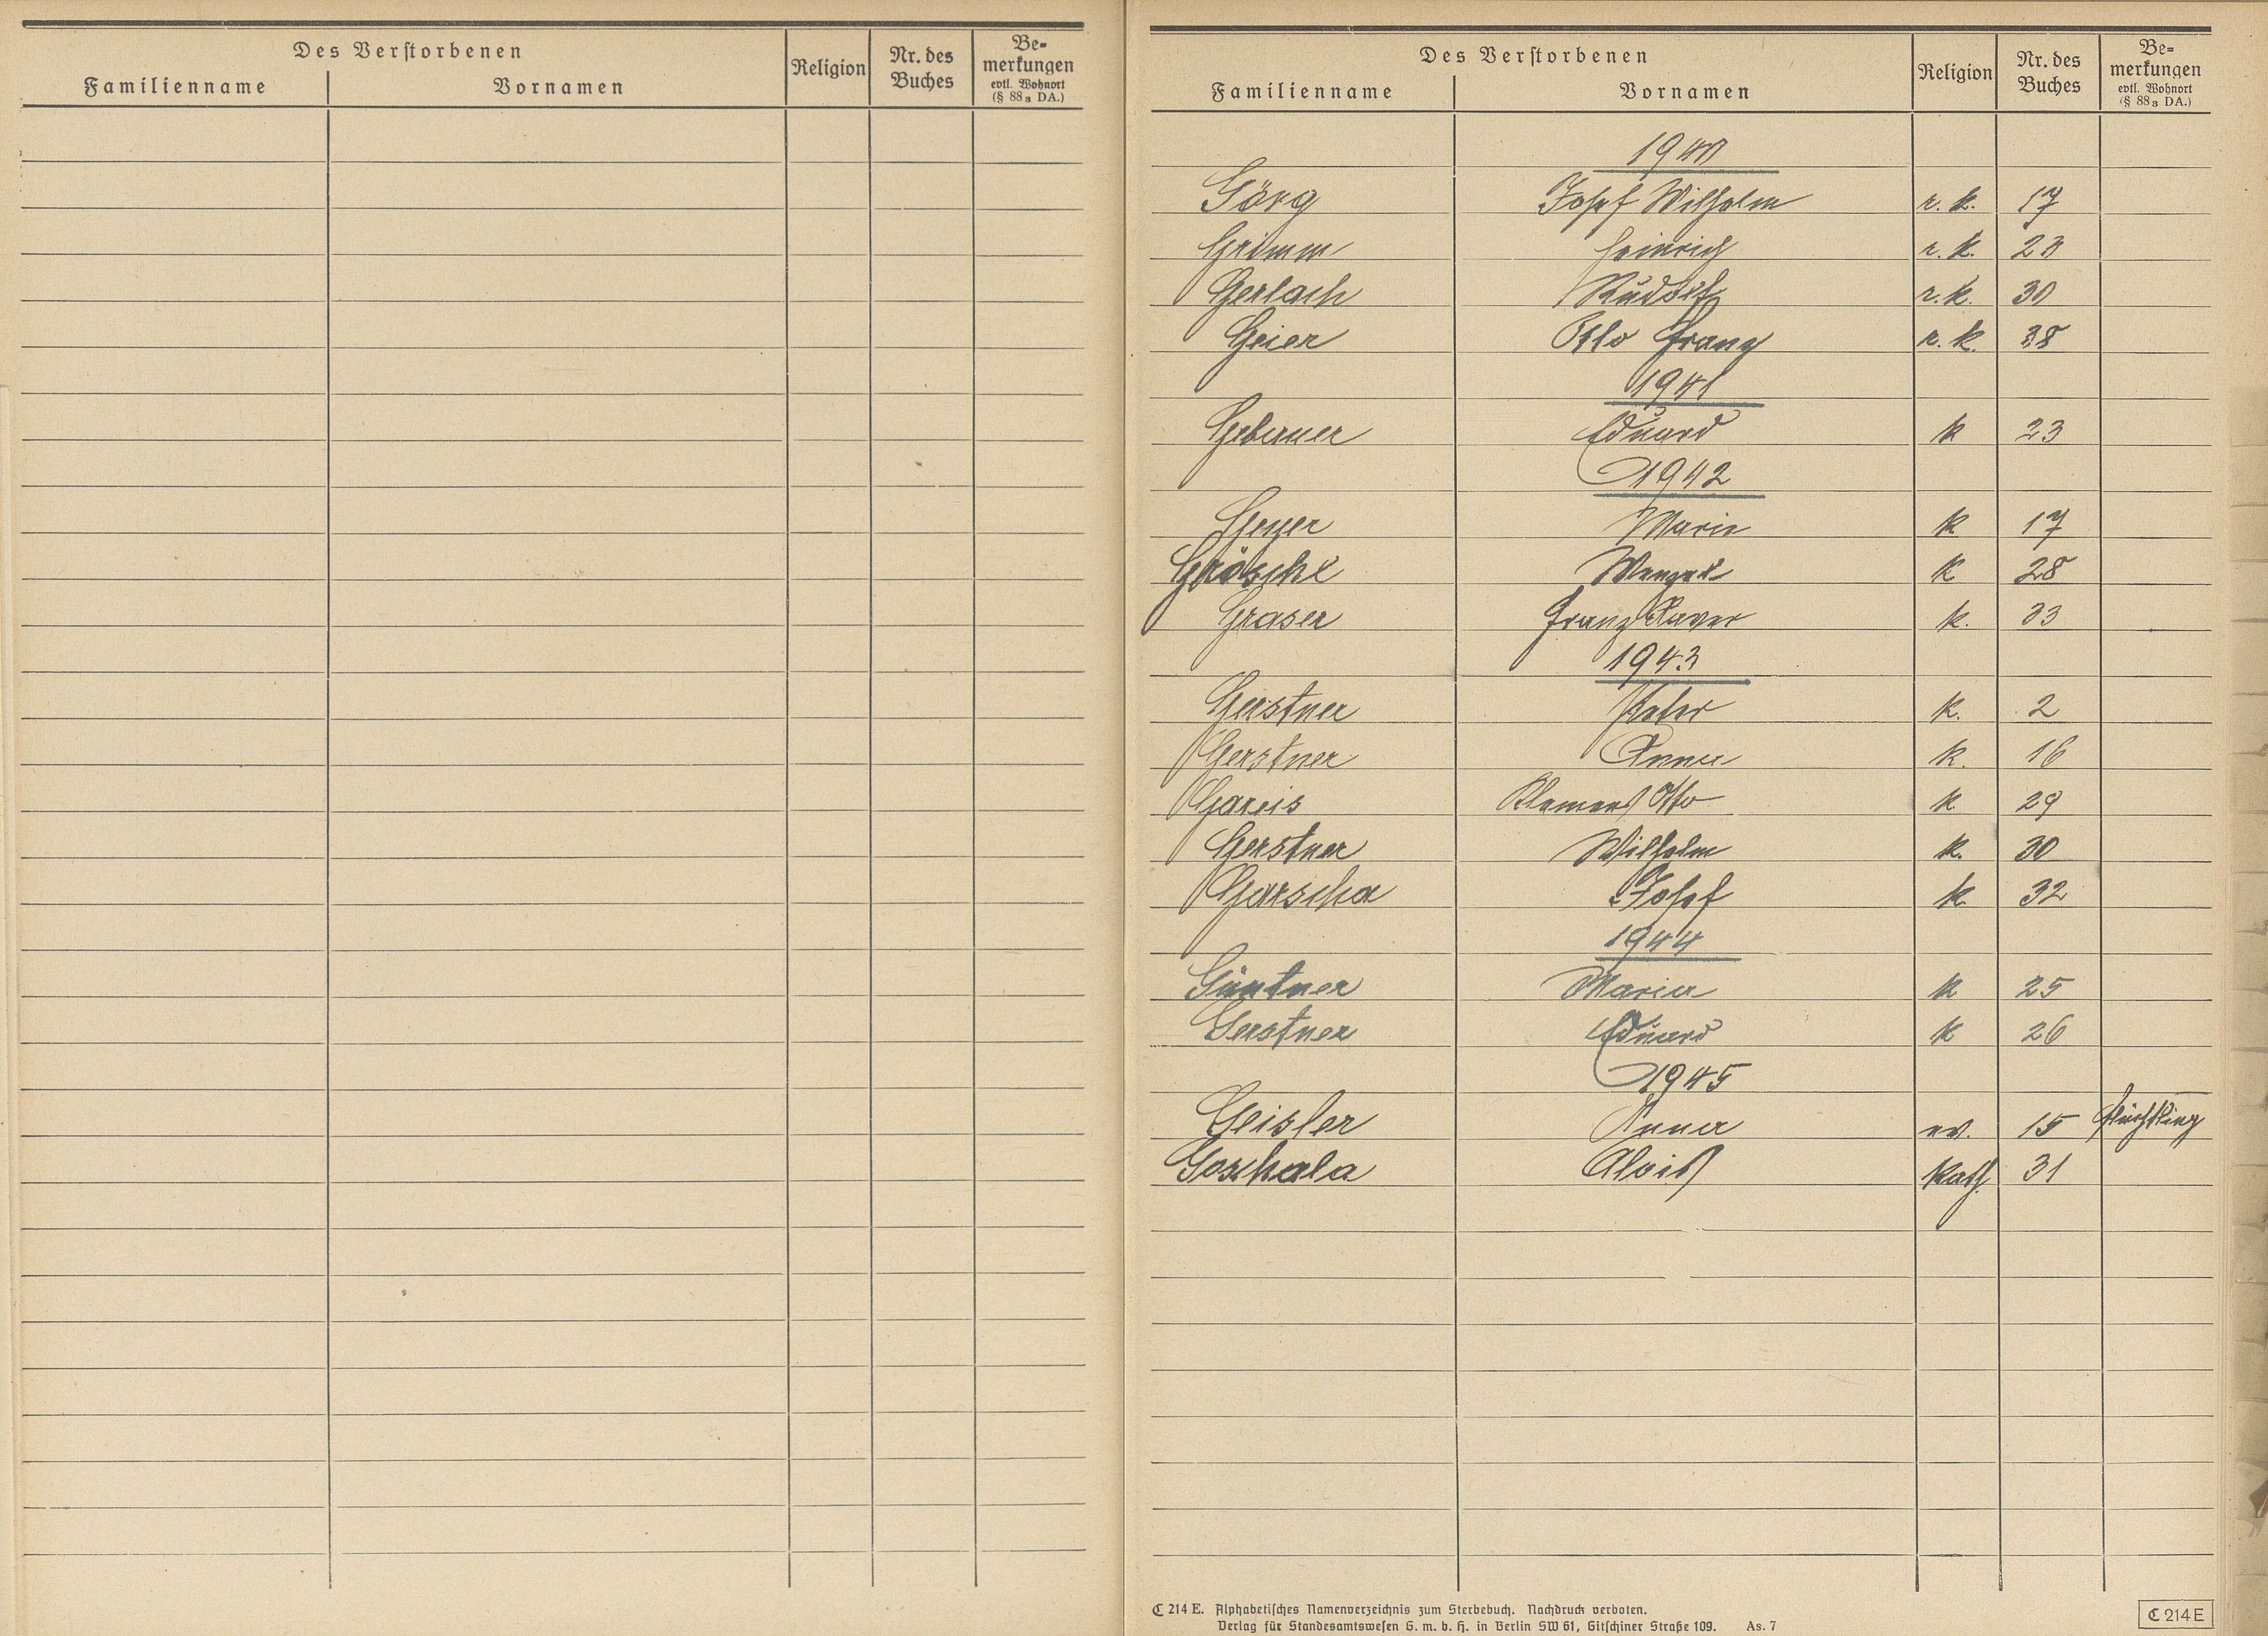 Des Verstorbenen
Familienname Vornamen Religion Nr. des Buches Be=merkungen evtl. Wohnort (§ 88a DA.)
Des Verstorbenen
Familienname Vornamen Religion Nr. des Buches Be=merkungen evtl. Wohnort (§ 88a DA.)
1940
Görg Josef Wilhelm r. k. 17
Grimm Heinrich r. k. 23
Gerlach Rudolf r. k. 30
Geier Otto Franz r. k. 38
1941
Gebauer Eduard k 23
1942
Geyer Marie k 17
Gröschl Wenzel k 28
Graser Franz Xaver k. 33
1943
Gerstner Peter k. 2
Gerstner Anna k. 16
Gareis Klemens Otto k 29
Gerstner Wilhelm k. 30
Garscha Josef k 32
1944
Güntner Maria k 25
Gerstner Eduard k 26
1945
Geisler Anna ev. 15 Flüchtling
Goschala Alois kath. 31
C 214 E. Alphabetisches Namenverzeichnis zum Sterbebuch. Nachdruck verboten.
Verlag für Standesamtswesen G. m. b. H. in Berlin SW 61, Gitschiner Straße 109. As. 7
C 214 E